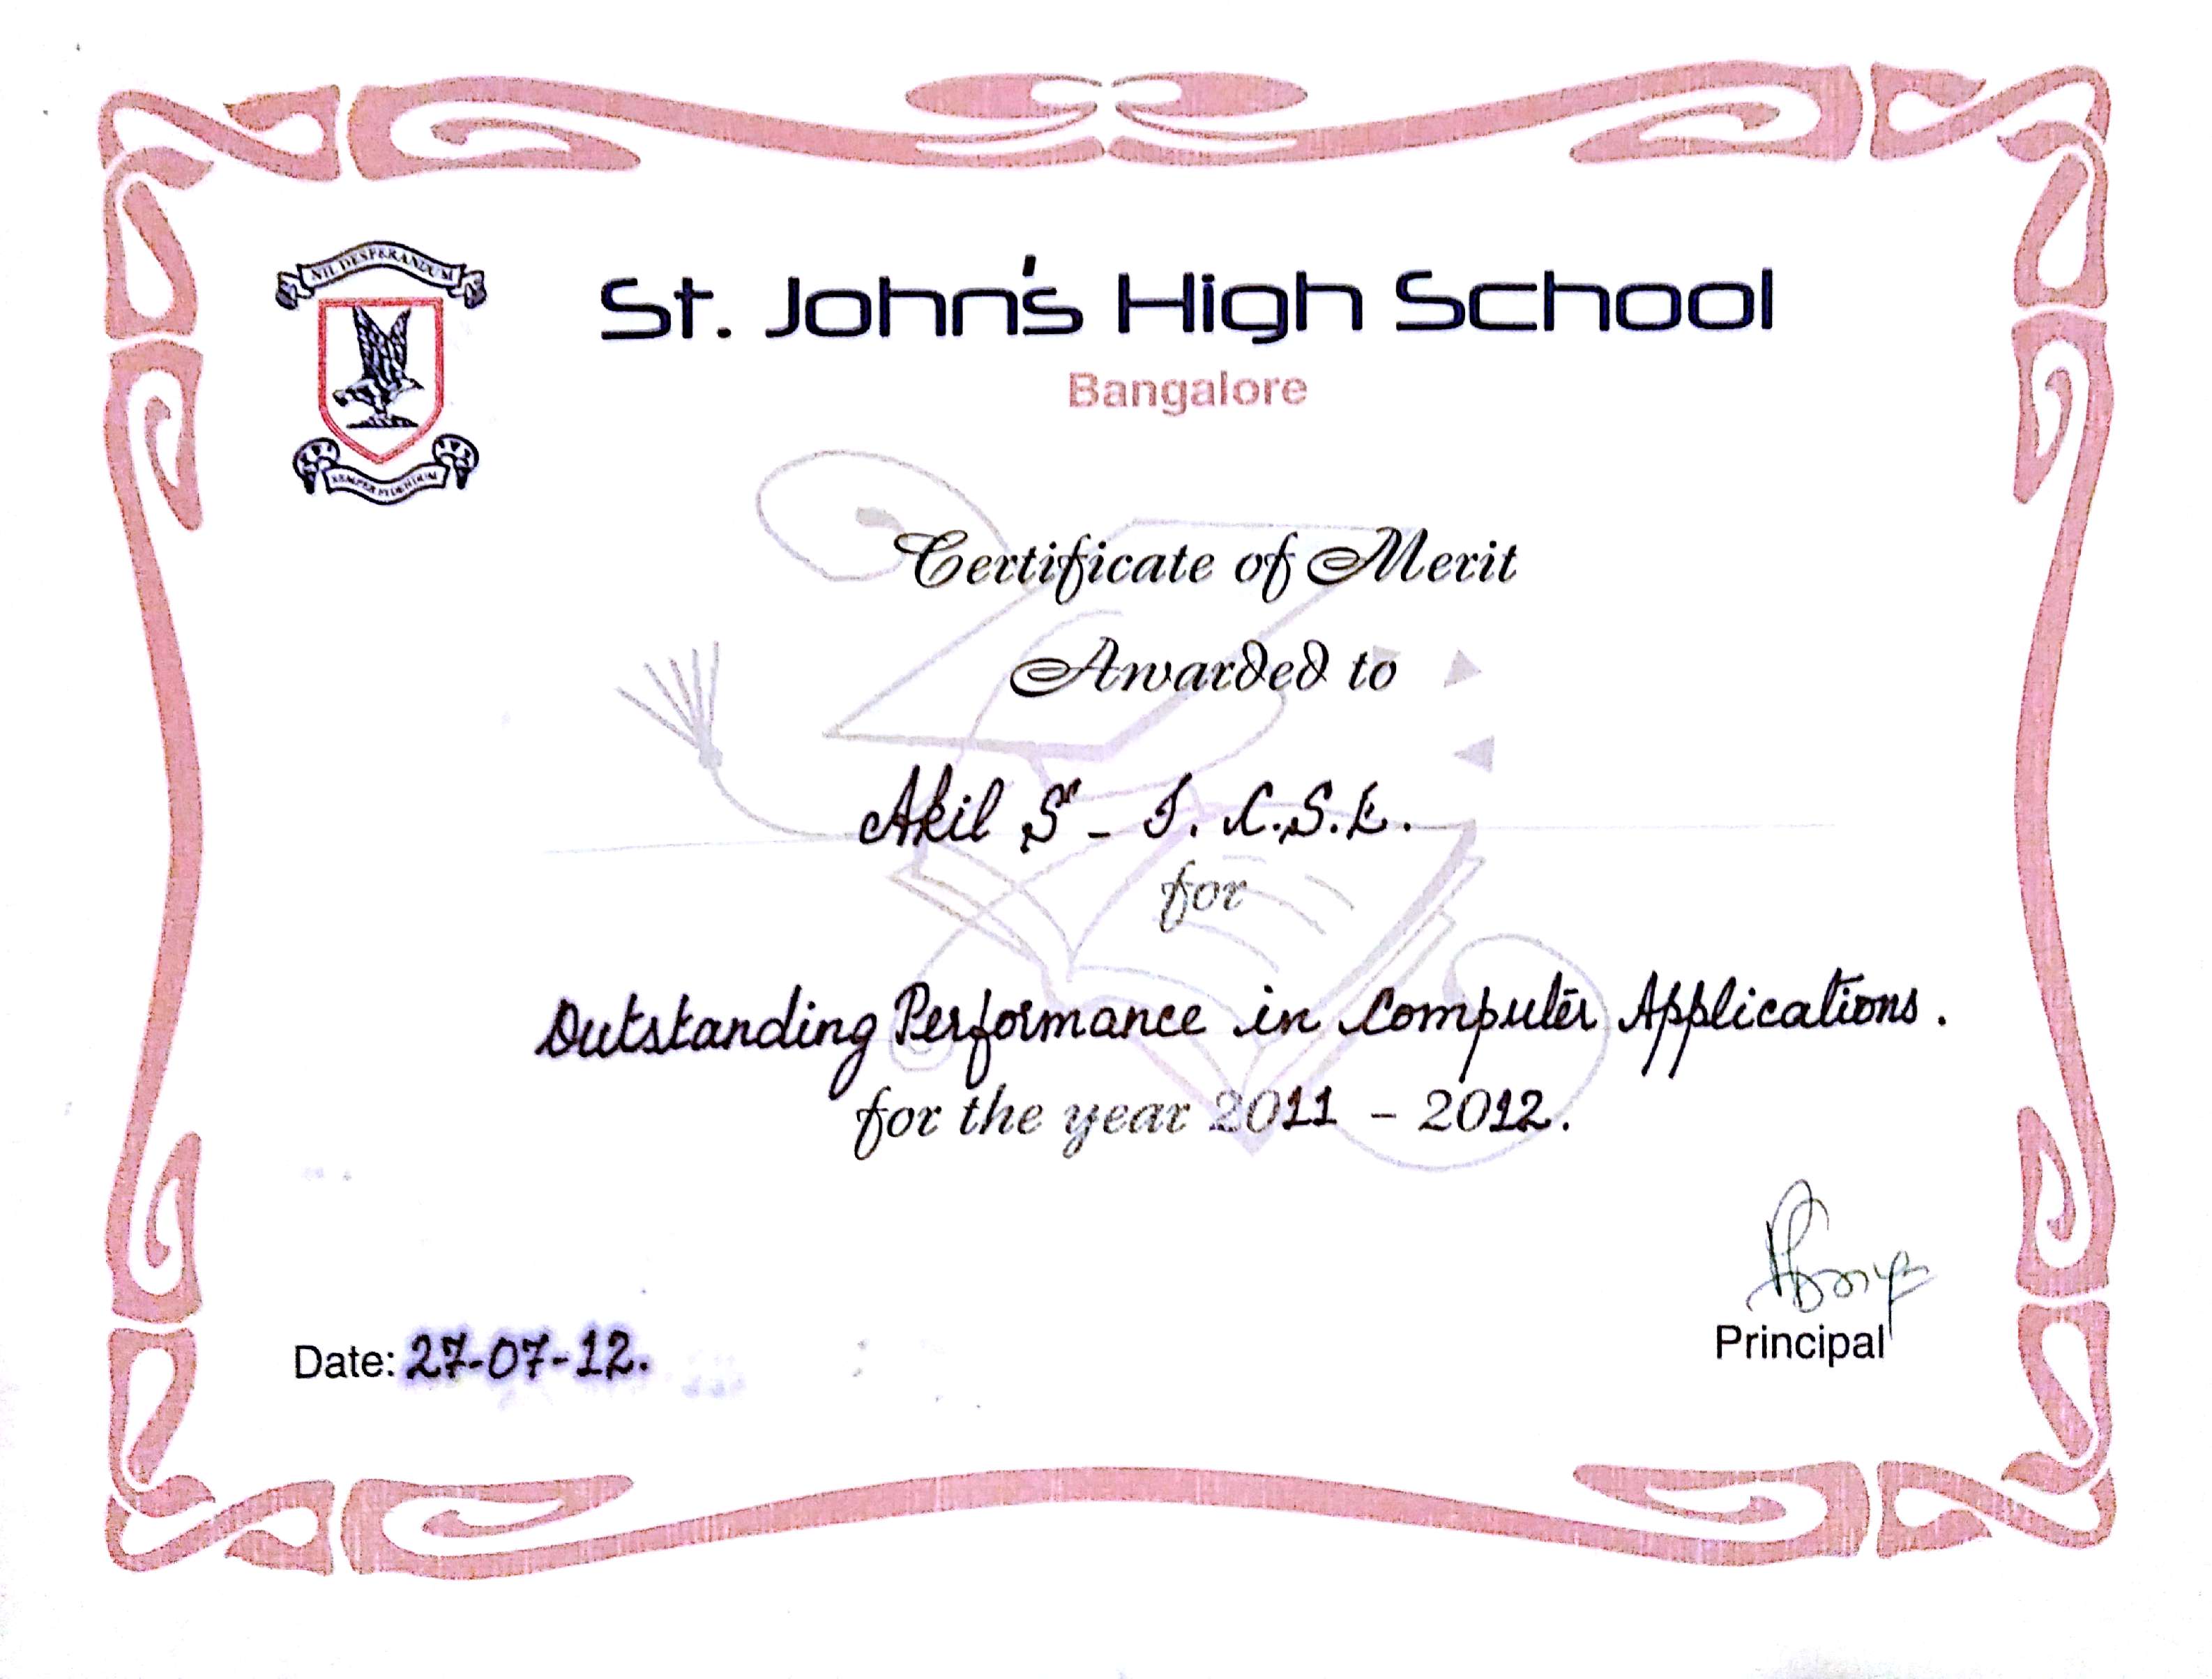 NIL DESPERANDUM
St. John's High School
Bangalore
Certificate of Merit
Awarded to
Akil S - I. C.S.E.
for
Outstanding Performance in Computer Applications.
for the year 2011 - 2012.
Principal
Date: 27-07-12.